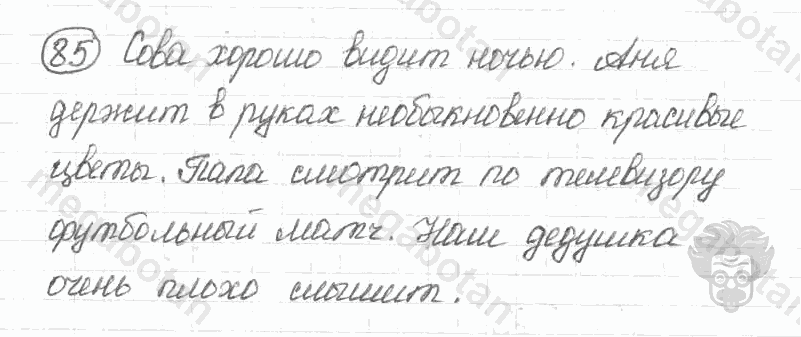 85 Сова хорошо видит ночью. Аня
держит в руках необыкновенно красивые
цветы. Папа смотрит по телевизору
футбольный матч. Наш дедушка
очень плохо слышит.
megabotan
megabotan
megabotan
megabotan
megabotan
megabotan